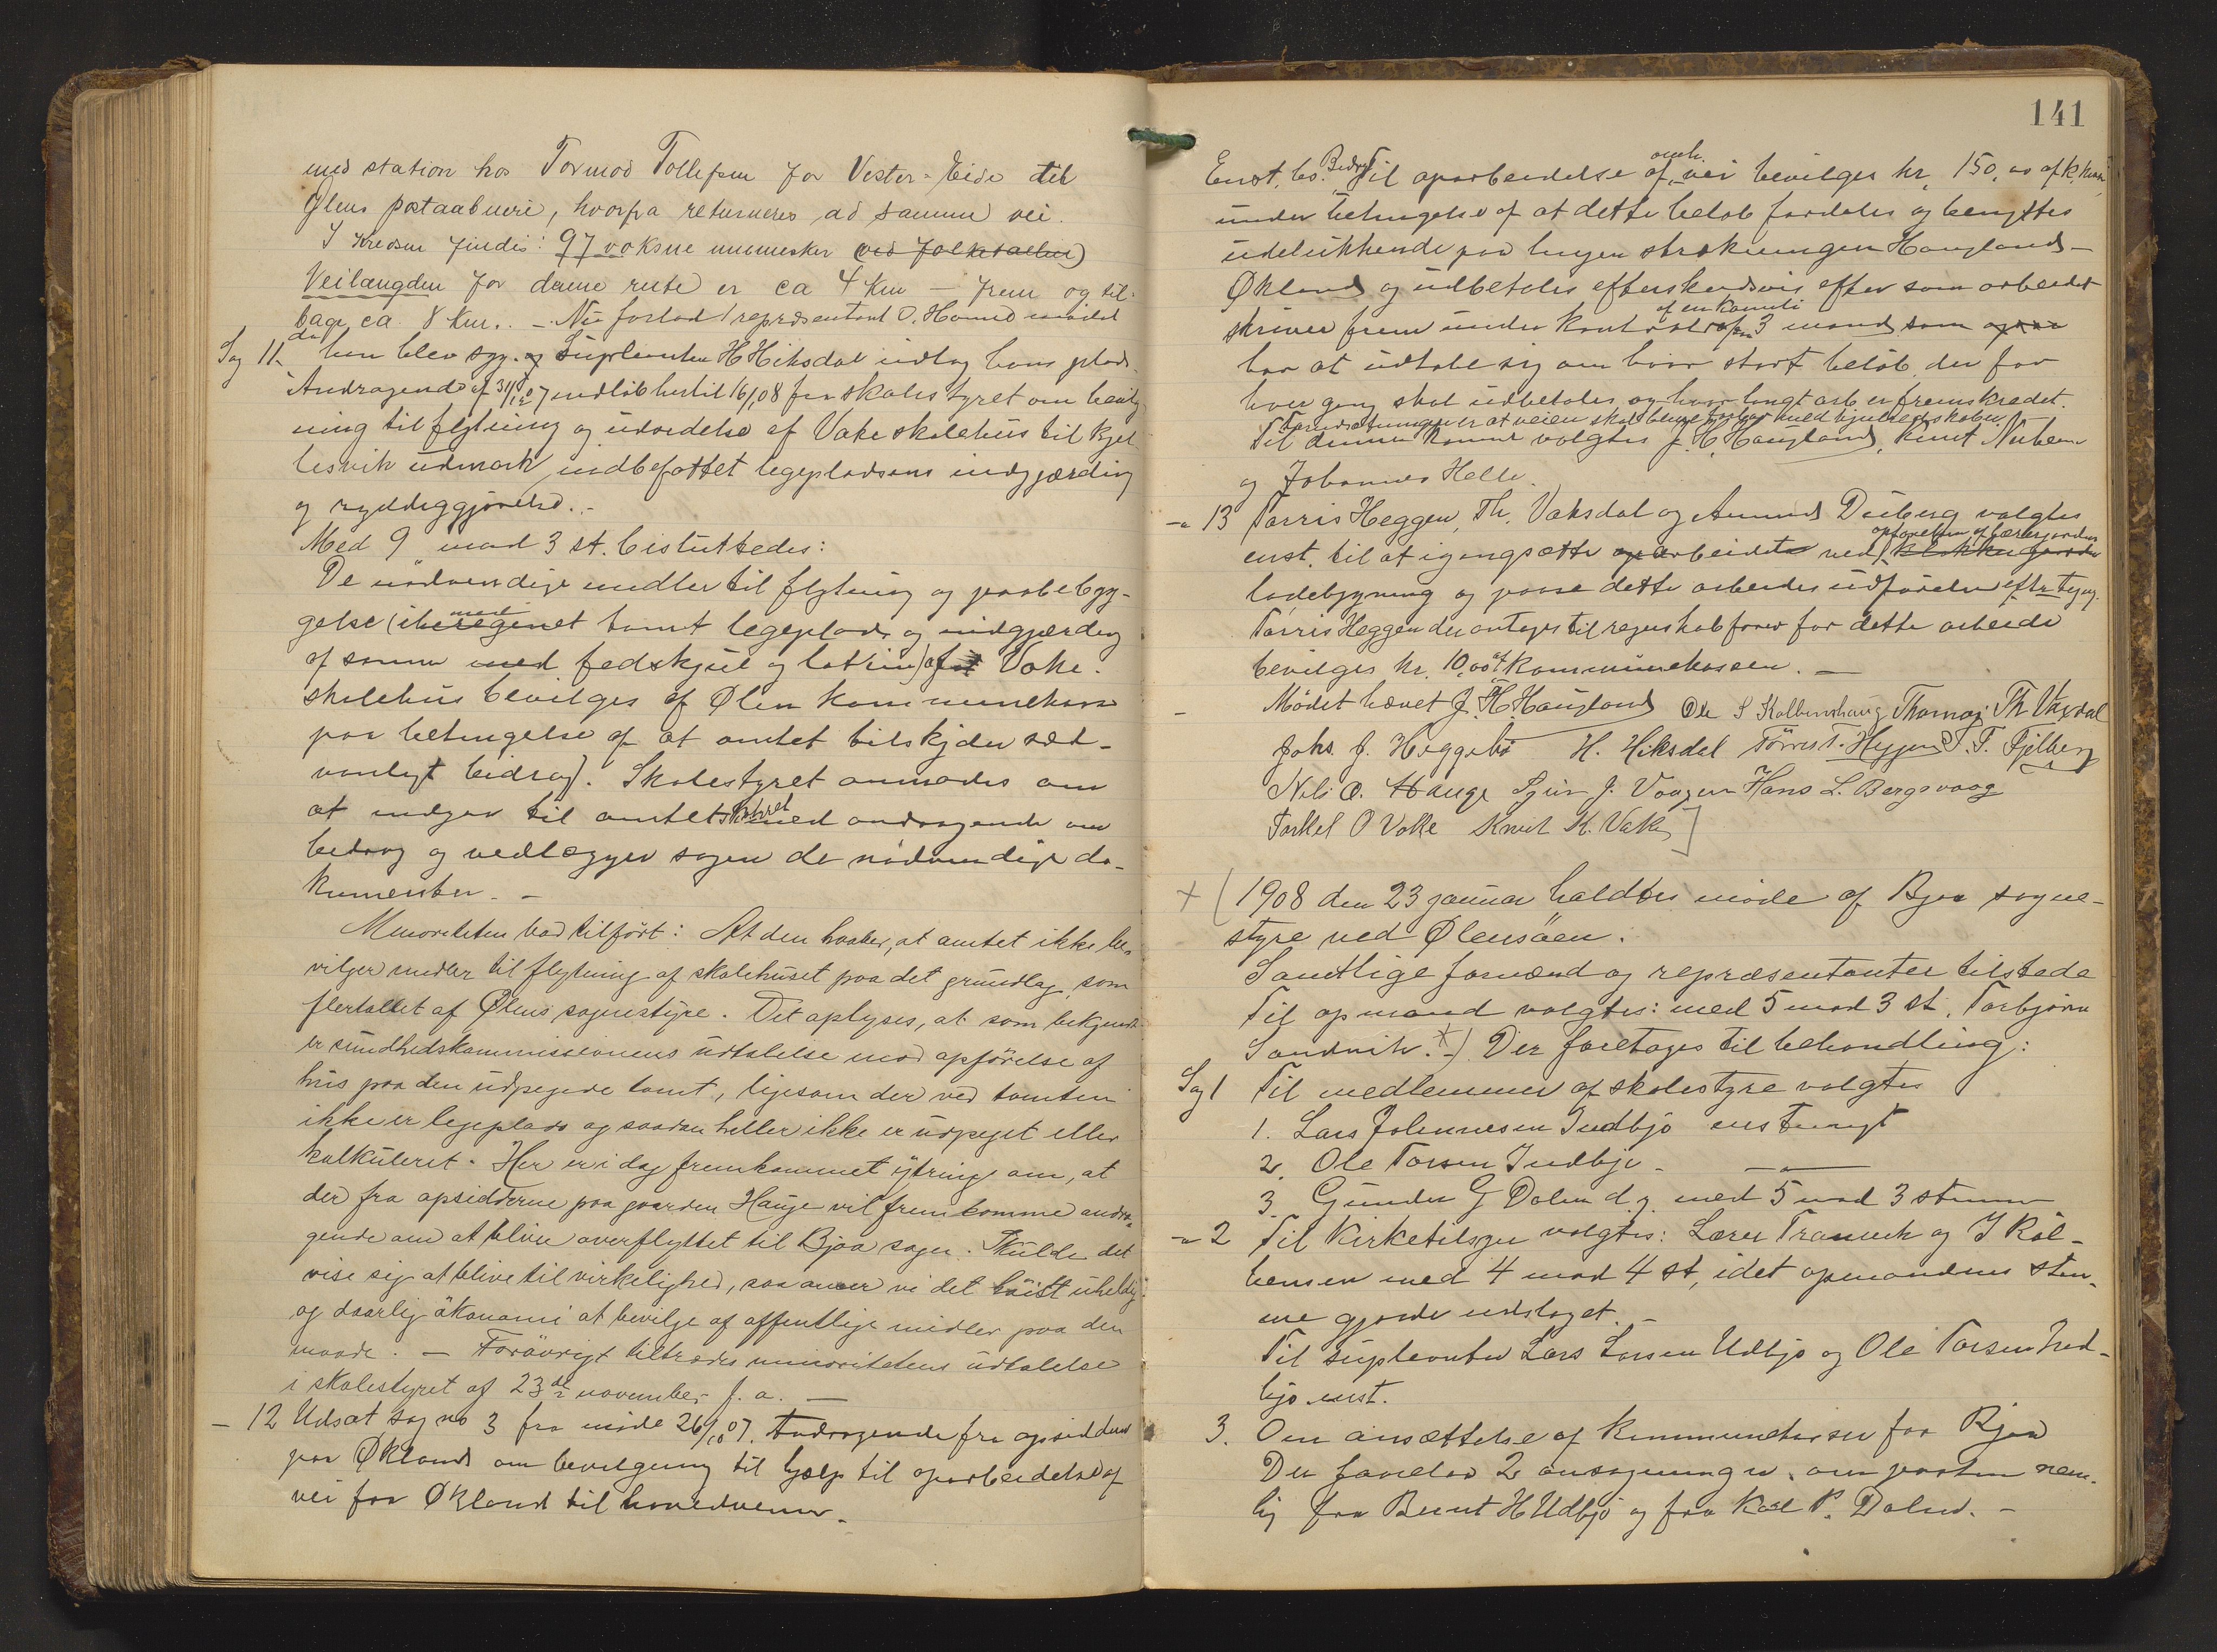 med station hos Tormod Tollefsen for Vester-Eide til
Ølens postaabneri, hvorfra returneres ad samme vei.
I Kredsen findes: 97 voksne mennesker (ved folketallen)
Veilængden for denne rute er ca 4 km – frem og til-
bage ca. 8 km.. – Nu forlod repræsentant O. Hamre mødet
da
Sag 11. han blev syg. og Suplenten H Hiksdal indtog hans plads.
Andragende af 31/12 07 indløb hertil 16/1 08 fra skolestyret om bevilg-
ning til flytning og udvidelse af Vake skolehus til Kjel-
lesvik udmark, indbefattet legepladsens indgjærding
og ryddiggjørelse. –
Med 9 mod 3 st. besluttedes:
De nødvendige midler til flytning og paabebyg-
med
gelse (iberegnet tomt legeplads og indgjærding
af samme med fedskjul og latrin) af Vake
skolehus bevilges af Ølen kommunekasse
paa betingelse af at amtet tilskyder sæd-
vanligt bidrag. Skolestyret anmodes om
skolestyret
at indgaa til amtets med andragende om
bidrag og vedlægger sagen de nødvendige do-
kumenter. –
Minoriteten bad tilført: At den haaber, at amtet ikke be-
vilger midler til flytning af skolehuset paa det grundlag, som
flertallet af Ølens sognestyre. Det oplyses, at som bekjendt
er sundhedskommissionens udtalelse mod opførelse af
hus paa den udpegede tomt, ligesom der ved tomten
ikke er legeplads og saadan heller ikke er udpeget eller
kalkuleret. Her er i dag fremkommet ytring om, at
der fra opsidderne paa gaarden Hauge vil fremkomme andra-
gende om at blive overflyttet til Bjoa sogn. Skulde det
vise sig at blive til virkelighed, saa anser vi det høist uheldig
og daarlig økonomi at bevilge af offentlige midler paa den
maade. – Forøvrigt tiltrædes minoritetens udtalelse
i skolestyret af 23de november f. a. –
– 12 Udsat sag no 3 fra møde 26/10 07. Andragende fra opsidderne
paa Økland om bevilgning til hjælp til oparbeidelse af
vei fra Økland til hovedveien. –
141
Bidrag omh.
Enst. bes. Til oparbeidelse af vei bevilges kr. 150,00 af K.kasse
under betingelse af at dette beløb fordeles og benyttes
udelukkende paa linjen strækningen Haugland –
Økland og udbetales efterskudsvis efter som arbeidet
af en komite
skrider frem under kontrol af paa 3 mand som ogsaa
har at udtale sig om hvor stort beløb, der for
hver gang skal udbetales og hvor langt arb. er fremskredet.
Forudsætningen er at veien skal blive farbar med hjulredskaber.
Til denne komite valgtes J. H. Haugland, Knut
og Johannes Helle.
–"– 13 Tørris Heggen, Th. Vaksdal og Amund Duberg valgtes
opførelsen af lærerjordens
enst. til at igangsætte arbeidet ved klokkergaardens
ladebygning og paase dette arbeides udførelse eftr tegng.
Tørris Heggen der antages til regnskabsfører for dette arbeide
bevilges kr. 10,00 af kommunekassen. –
– Mødet hævet J. H. Haugland Ole S Kolbenshaug Thomas Th Vaxdal
Johs. J. Heggebø H. Hiksdal Tørris T. Heggen T. Fjelberg
Nils O. Hauge Sjur J. Vaagen Hans L. Bergsvaag
Torkel O Vake Knut K. Vake
× ( 1908 den 23 januar holdtes møde af Bjoa sogne-
styre ved Ølensøen.
Samtlige formænd og repræsentanter tilstede
Til opmand valgtes: med 5 mod 3 st. Torbjørn
Sandvik. ×) Der foretages til behandling:
Sag 1 Til medlemmer af skolestyre valgtes
1. Lars Johannesen Indbjo enstemigt
2. Ole Torsen Indbjo – –"–
3. Gunder G Dalen d. y. med 5 mod 3 stemmer
–"– 2 Til Kirketilsyn valgtes: Lærer og I Kol-
bensen med 4 mod 4 st, idet opmandens stem-
me gjorde udslaget. –
Til suplenter Lars Larsen Udbjo og Ole Torsen Ind-
bjo enst.
3. Om ansættelse af kommunekasser for Bjoa
Der forelaa 2 ansøgninger om posten nem-
lig fra Bernt H Udbjo og fra Karl P. Dalen. –